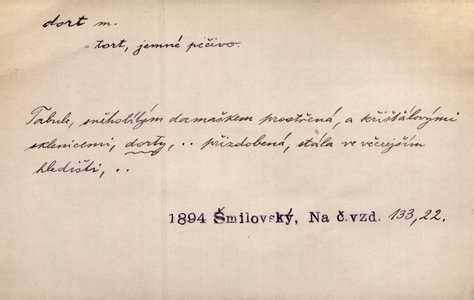 dort m.
= tort, jemné pečivo.
Tabule, sněhobílým damaškem prostřená, a křišťálovými
sklenicemi, dorty, .. přizdobená, stála ve včejším
hledišti, ..
1894 Šmilovský, Na č.vzd. 133,22.